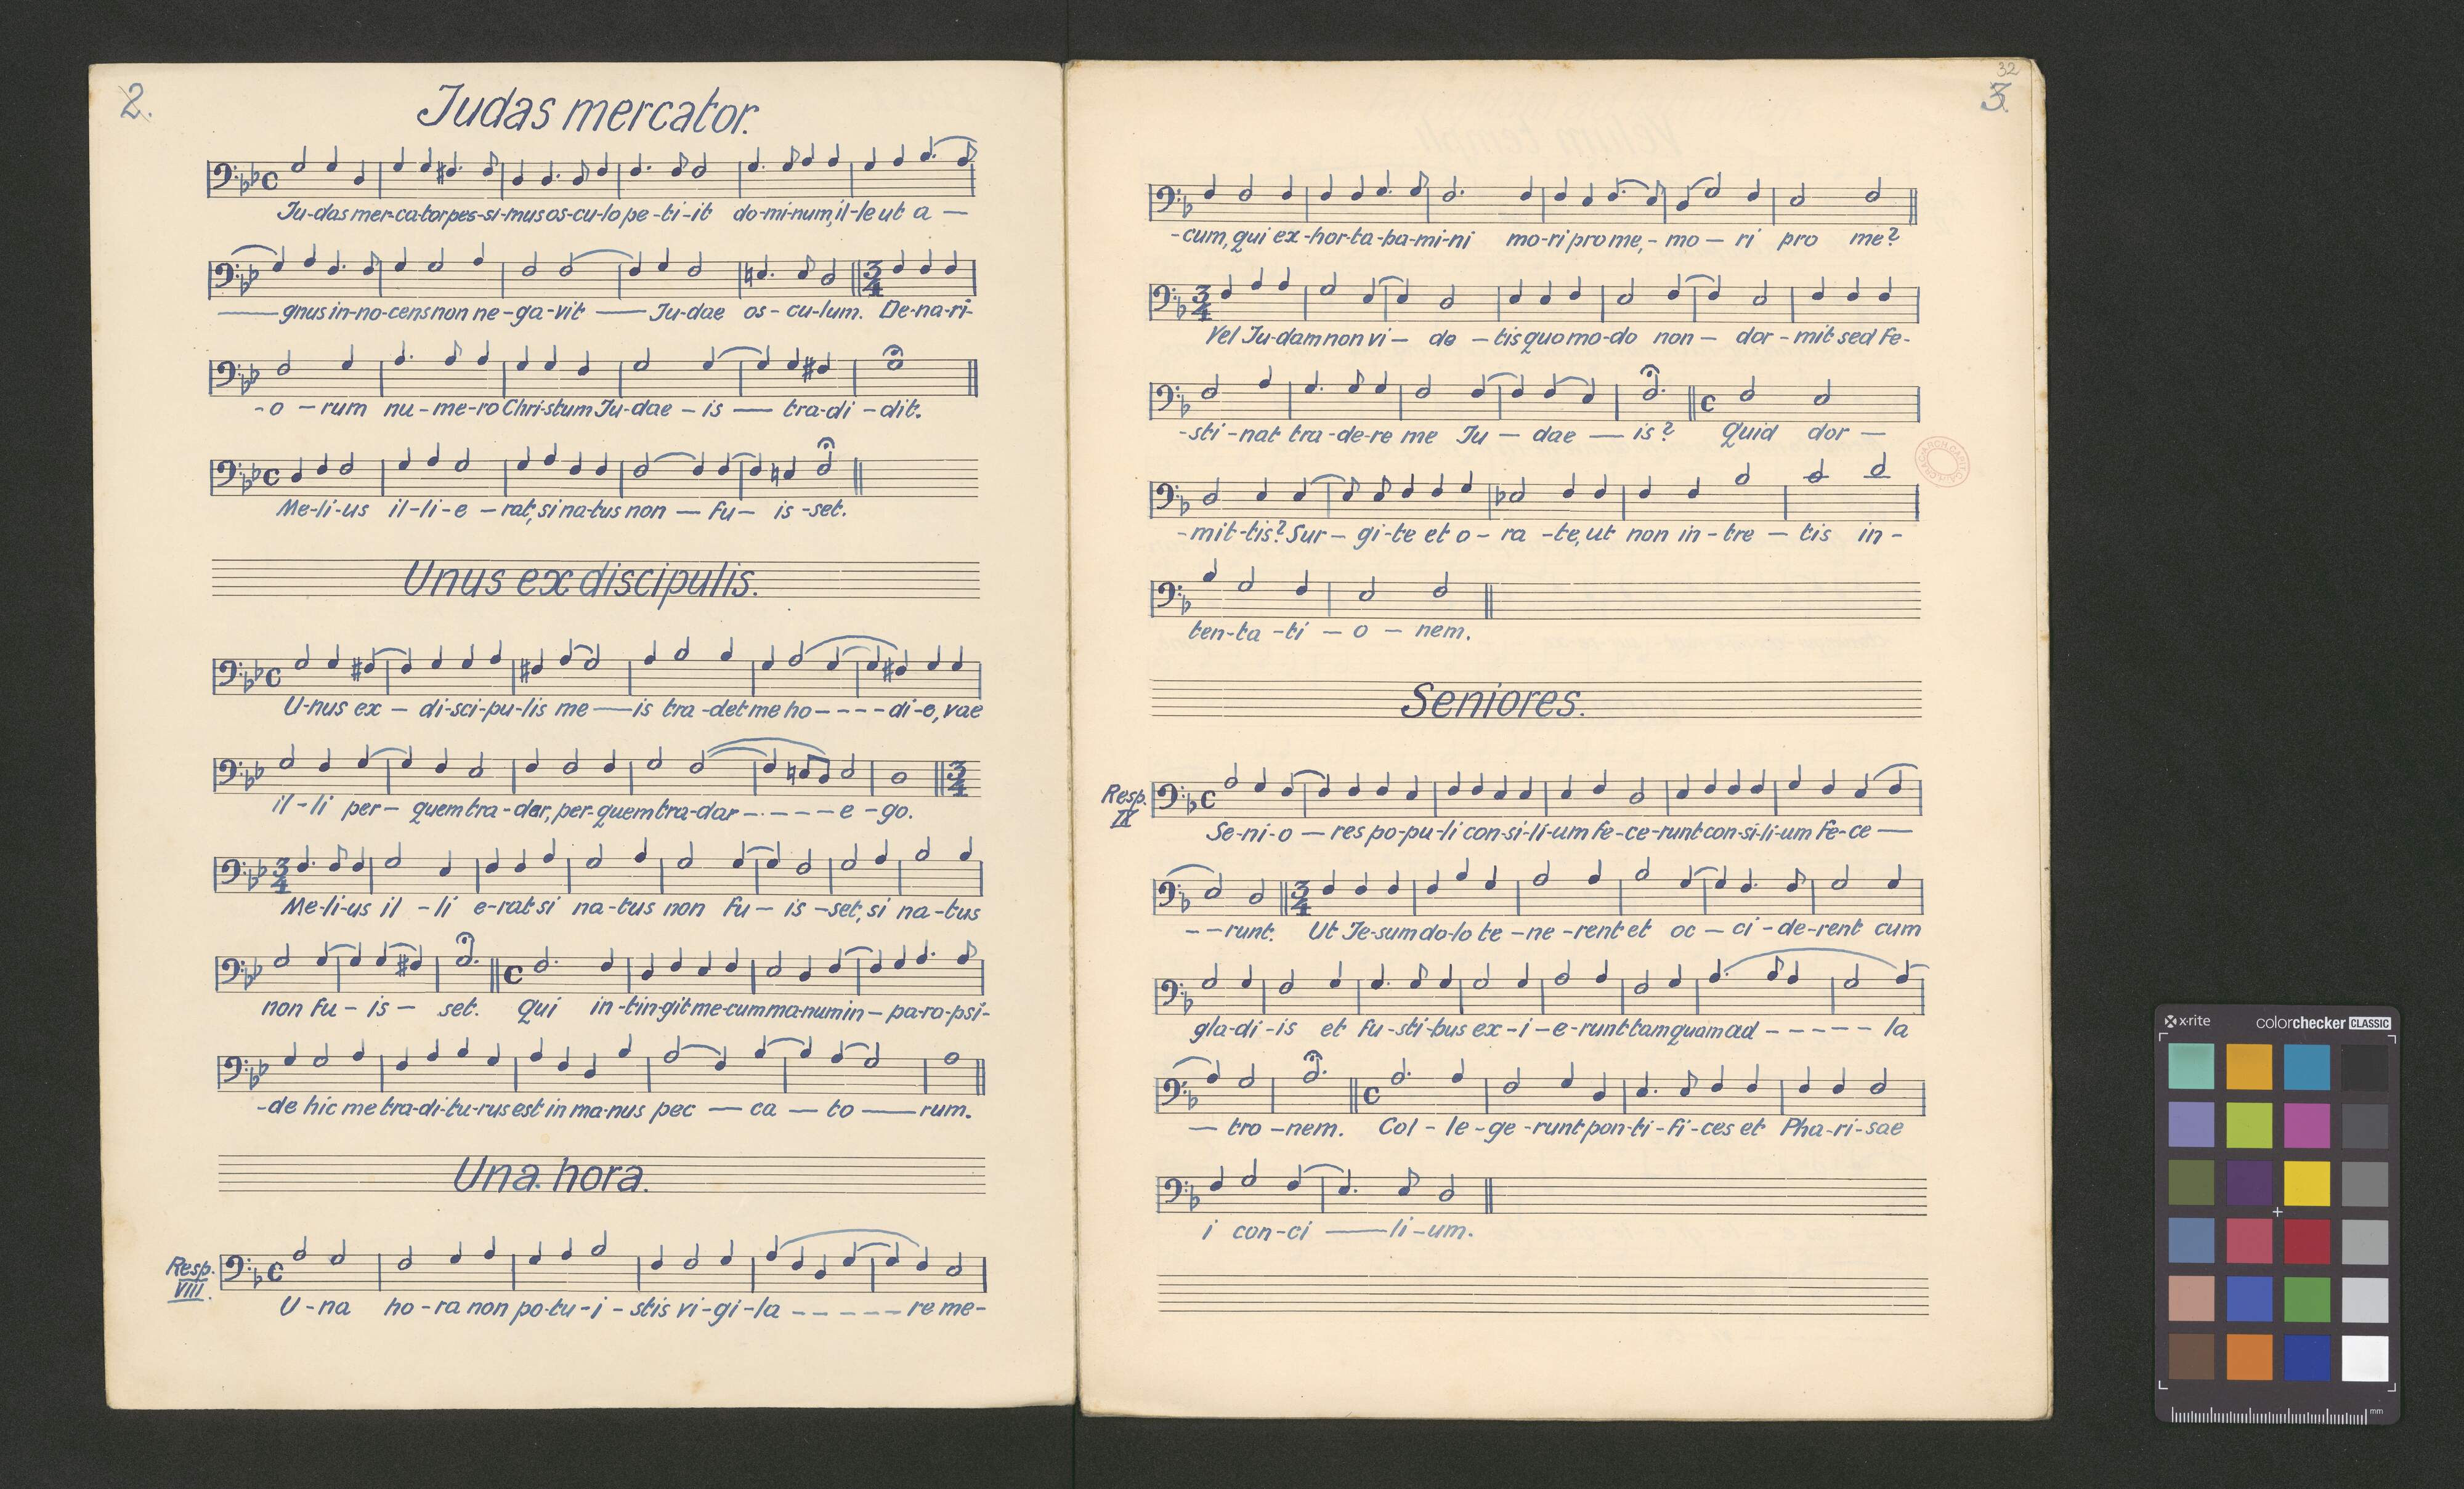 2.
Judas mercator.
Ju-das mer-ca-tor pes-si-mus os-cu-lo pe-ti-it do-mi-num, il-le ut a —
— gnus in-no-cens non ne-ga-vit — Ju-dae os-cu-lum. De-na-ri-
-o-rum nu-me-ro Chri-stum Ju-dae-is — tra-di-dit.
Me-li-us il-li-e-rat, si na-tus non — fu-is-set.
Unus ex discipulis.
U-nus ex — di-sci-pu-lis me — is tra-det me ho - - - - di-e, vae
il-li per- quem tra-dar, per-quem tra-dar - - - - - e-go.
Me-li-us il-li e-rat si na-tus non fu-is-set, si na-tus
non fu-is- set. Qui in-tin-git me-cum ma-num in- pa-ro-psi-
-de hic me tra-di-tu-rus est in ma-nus pec — ca — to — rum.
Una hora.
Resp. VIII.
U-na ho-ra non po-tu-i-stis vi-gi-la - - - - - re me-
32
3.
-cum, qui ex-hor-ta-ba-mi-ni mo-ri pro me, - mo — ri pro me?
Vel Ju-dam non vi — de — tis quo mo-do non — dor-mit sed fe-
-sti-nat tra-de-re me Ju — dae — is? Quid dor —
-mit-tis? Sur — gi-te et o-ra-te, ut non in-tre — tis in-
ten-ta-ti — o — nem.
Seniores.
Resp. IX
Se-ni-o — res po-pu-li con-si-li-um fe-ce-runt con-si-li-um fe-ce —
- - runt. Ut Je-sum do-lo te-ne-rent et oc — ci-de-rent cum
gla-di-is et fu-sti-bus ex-i-e-runt tam quam ad - - - - - la
— tro-nem. Col-le-ge-runt pon-ti-fi-ces et Pha-ri-sae
i con-ci — li-um.
x-rite colorchecker CLASSIC
mm